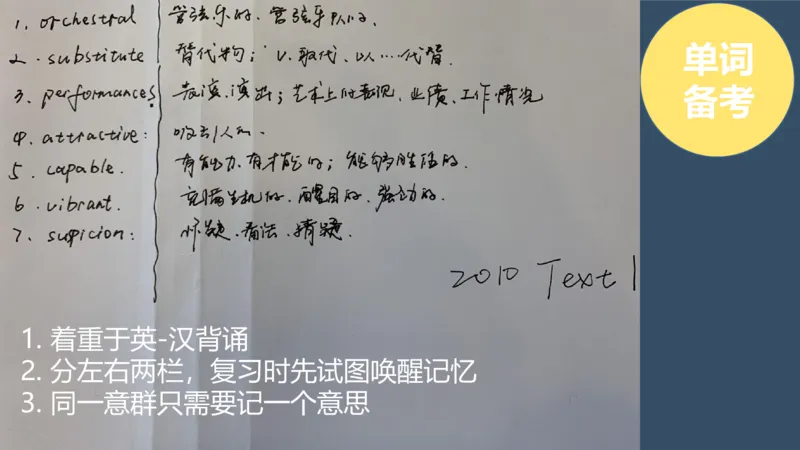 1. orchestral 管弦乐的、管弦乐队的、
2. substitute 替代物；v.取代、以…代替.
3. performances 表演、演出；艺术上的表现、业绩、工作情况
4. attractive: 吸引人的.
5. capable. 有能力、有才能的；能够胜任的.
6. vibrant. 充满生机的、醒目的、强劲的.
7. supicion: 怀疑、看法、猜疑.
2010 Text 1
单词
备考
1. 着重于英-汉背诵
2. 分左右两栏，复习时先试图唤醒记忆
3. 同一意群只需要记一个意思